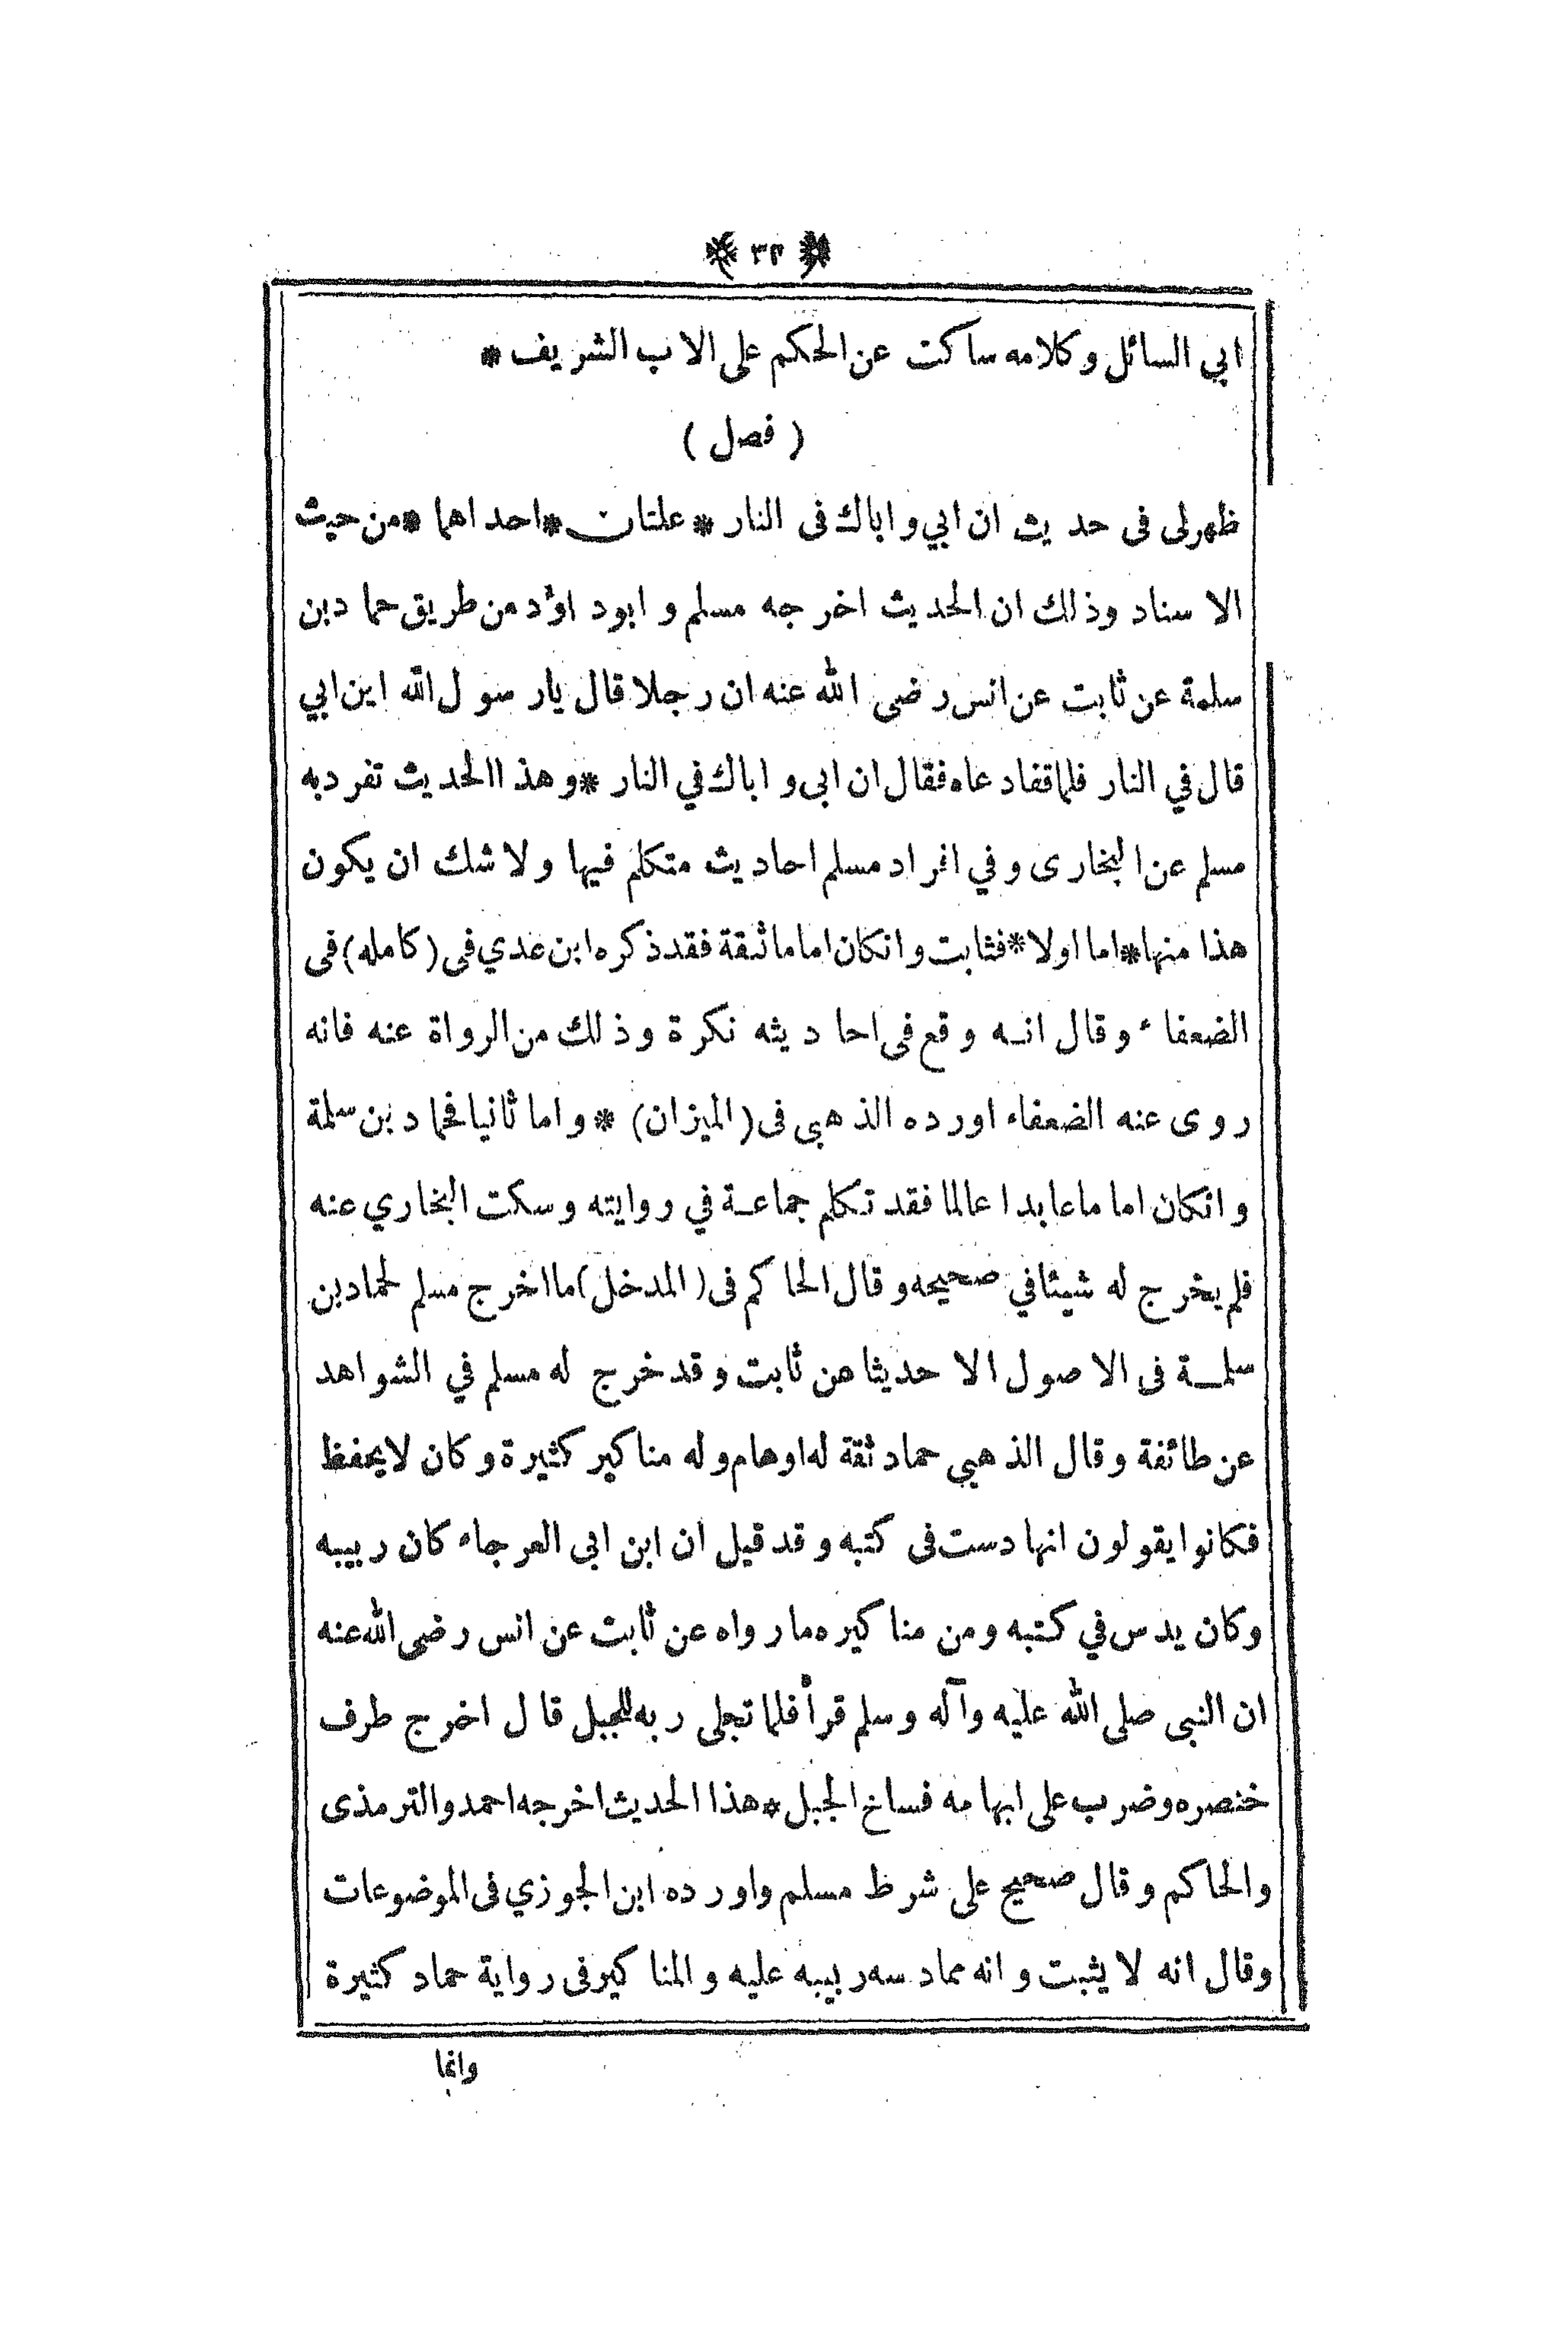 ﴿ ٣٢ ﴾
ابي السائل وكلامه ساكت عن الحكم على الاب الشريف *
( فصل )
ظهرلى فى حديث ان ابي و اباك فى النار * علتان * احداهما * من حيث
الاسناد وذلك ان الحديث اخرجه مسلم و ابوداؤد من طريق حماد بن
سلمة عن ثابت عن انس رضى الله عنه ان رجلا قال يارسول الله اين ابي
قال في النار فلما قفادعاه فقال ان ابى و اباك في النار * وهذا الحديث تفرد به
مسلم عن البخارى و في افراد مسلم احاديث متكلم فيها ولا شك ان يكون
هذا منها * اما اولا * فثابت وانكان اماما ثقة فقد ذكره ابن عدي فى (كامله) فى
الضعفاء وقال انه وقع فى احاديثه نكرة وذلك من الرواة عنه فانه
روى عنه الضعفاء اورده الذهبى فى (الميزان) * واما ثانيا فحماد بن سلمة
وانكان اماما عابدا عالما فقد تكلم جماعة في روايته وسكت البخاري عنه
فلم يخرج له شيئا في صحيحه وقال الحاكم فى (المدخل) ما اخرج مسلم لحماد بن
سلمة فى الاصول الا حديثا عن ثابت وقد خرج له مسلم في الشواهد
عن طائفة وقال الذهبي حماد ثقة له اوهام وله مناكير كثيرة وكان لا يحفظ
فكانوا يقولون انها دست فى كتبه وقد قيل ان ابن ابى العرجاء كان ربيبه
وكان يدس في كتبه ومن مناكيره ما رواه عن ثابت عن انس رضى الله عنه
ان النبى صلى الله عليه وآله وسلم قرأ فلما تجلى ربه للجبل قال اخرج طرف
خنصره وضرب على ابهامه فساخ الجبل * هذا الحديث اخرجه احمد والترمذى
والحاكم وقال صحيح على شرط مسلم واورده ابن الجوزي فى الموضوعات
وقال انه لا يثبت وانه مماد سه ربيبه عليه والمناكير فى رواية حماد كثيرة
وانما